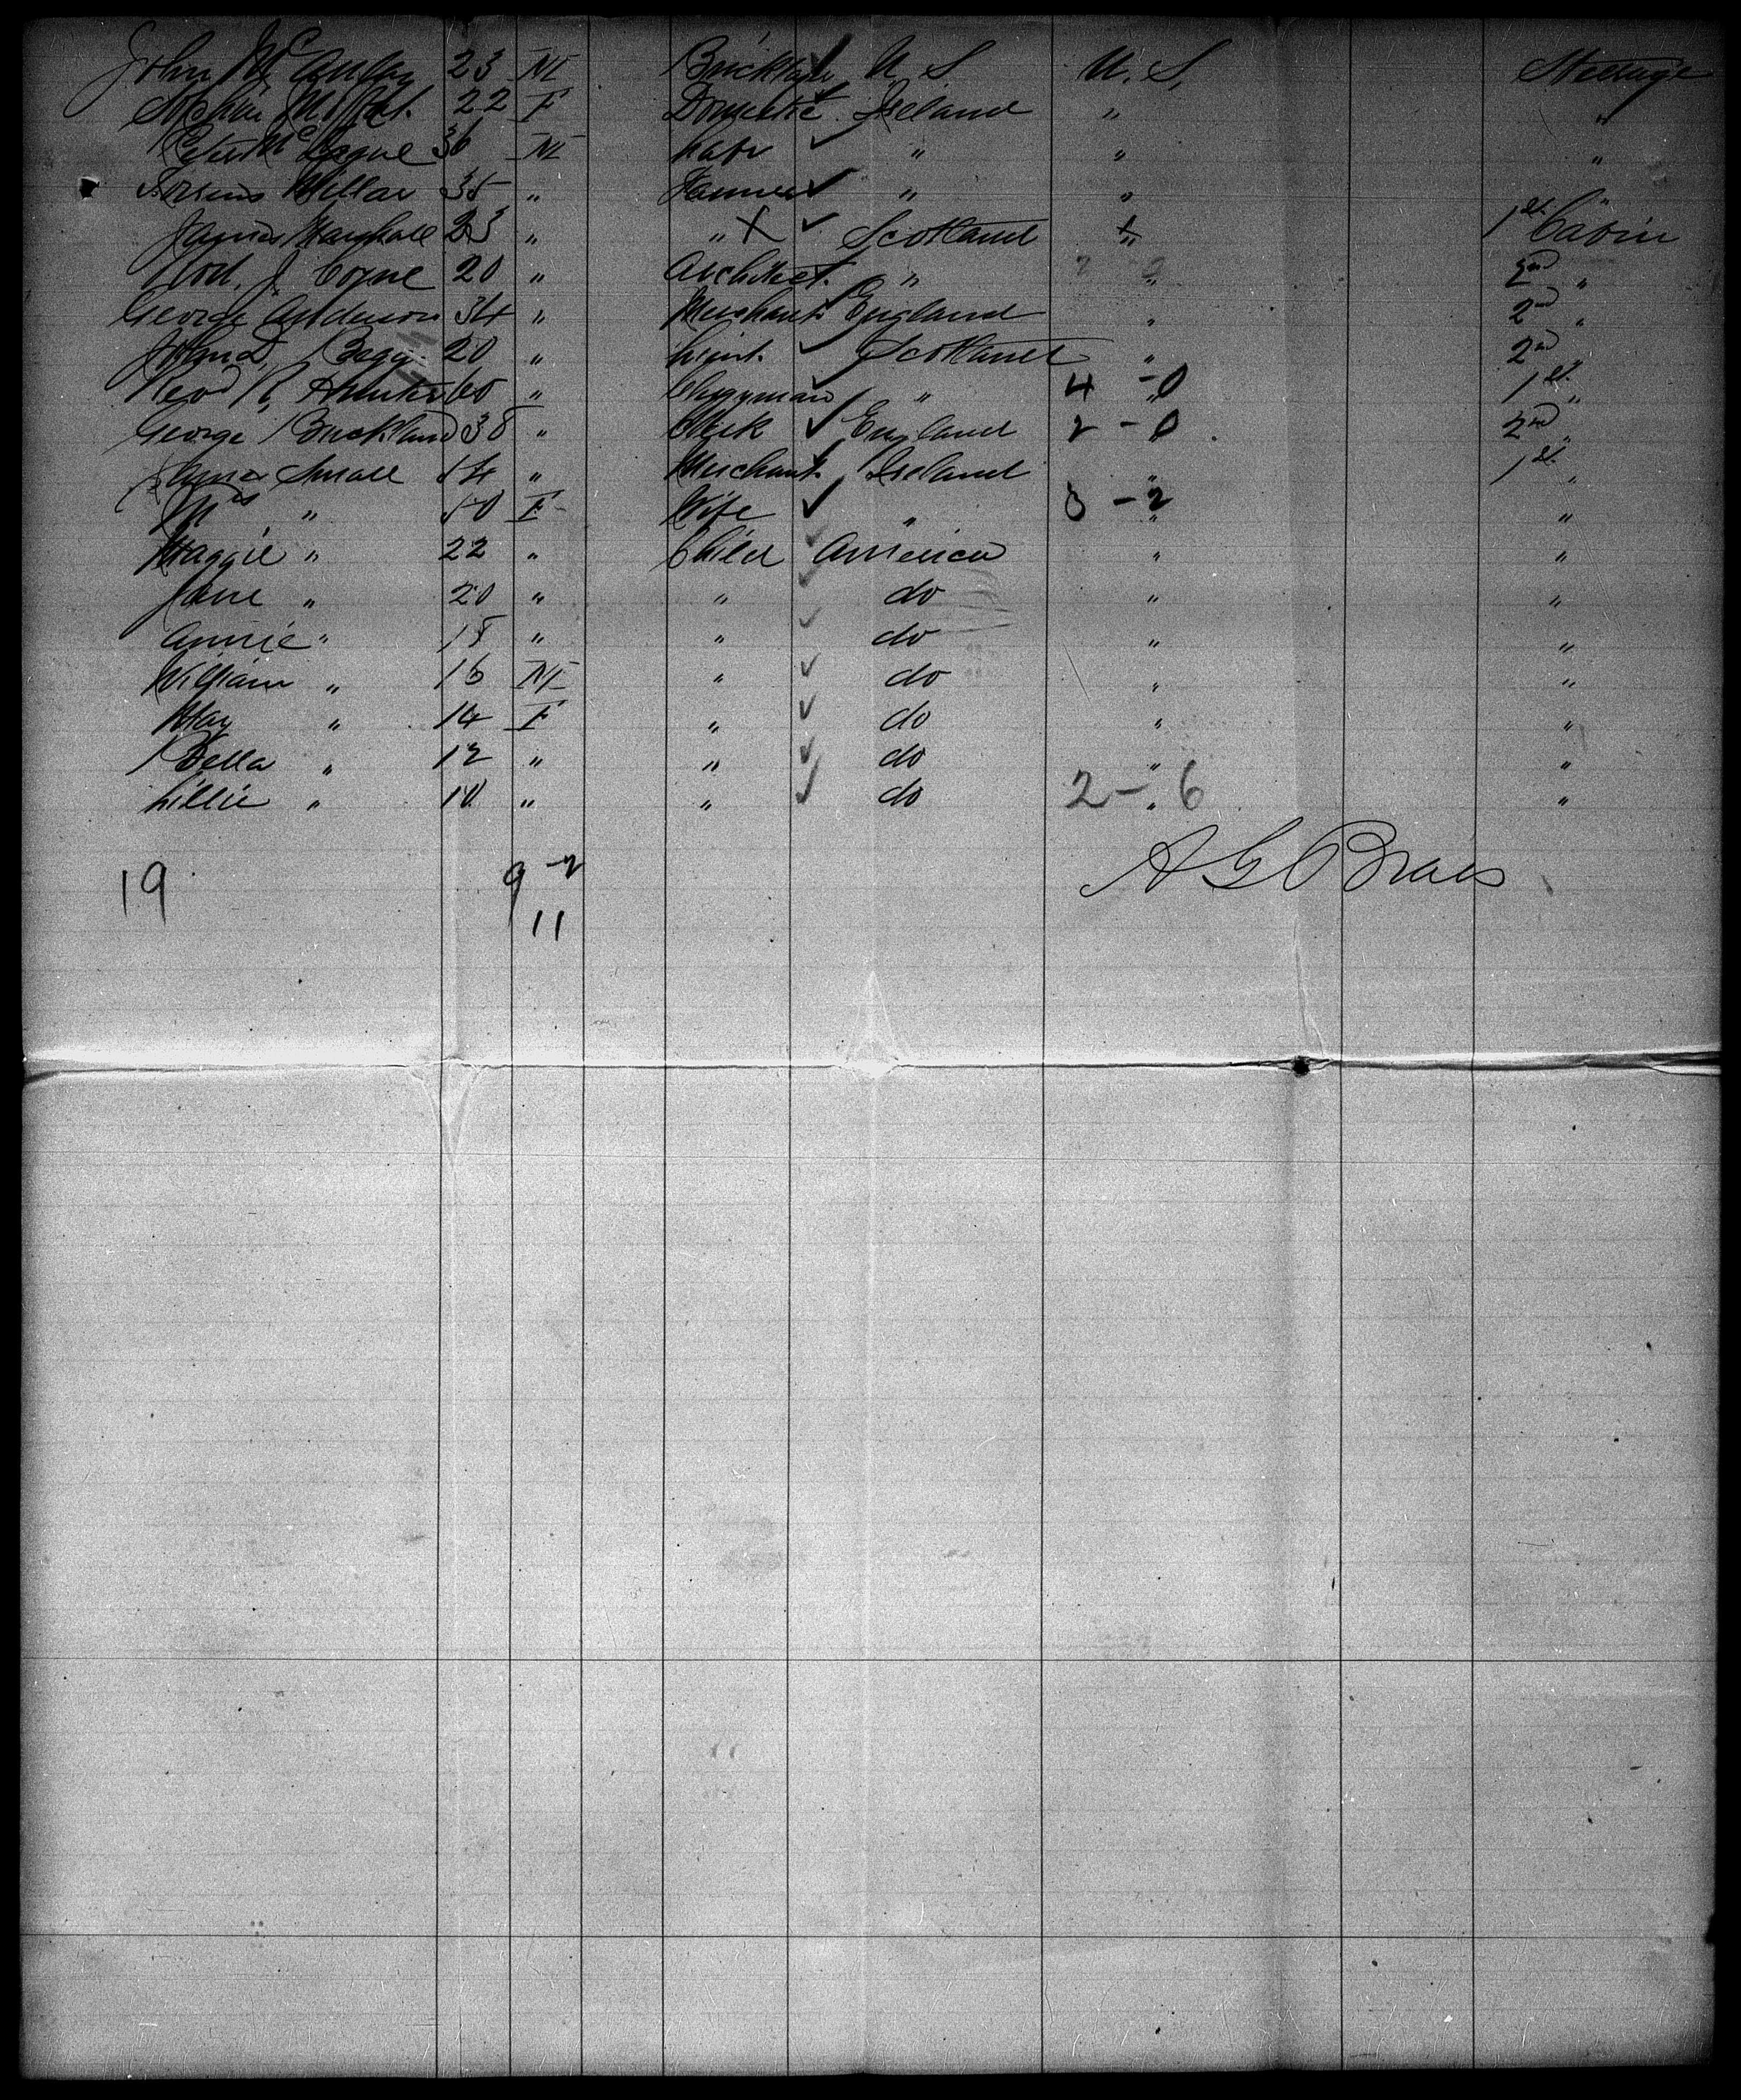 John Mc 23 M Bricklayer ✓ U S U. S. Steerage
Sophia Moffat. 22 F Domestic ✓ Ireland " "
Peter McCague 36 M Labr ✓ " " "
Millar 35 " Farmer ✓ " " "
James Marshall 23 " " X ✓ Scotland " 1st Cabin
J. Coyne 20 " Architect. " " 2nd "
George Anderson 34 " Merchant ✓ England " 2nd "
John D. Begg. 20 " ✓ Scotland " 2nd
Revd R. Hunter 60 " Clergyman ✓ " 4 - 0 1st "
George Buckland 38 " Clerk ✓ England 2 - 0 2nd "
James Small 54 " Merchant ✓ Ireland " 1st "
Mrs " 50 F Wife ✓ " 0 - 2 "
Maggie " 22 " Child ✓ America " "
Jane " 20 " " ✓ do " "
Annie " 18 " " ✓ do " "
William " 16 M " ✓ do " "
May " 14 F " ✓ do " "
Bella " 12 " " ✓ do " "
Lillie " 10 " " ✓ do 2 - 6 "
19 9 - 2 A G Braes
11